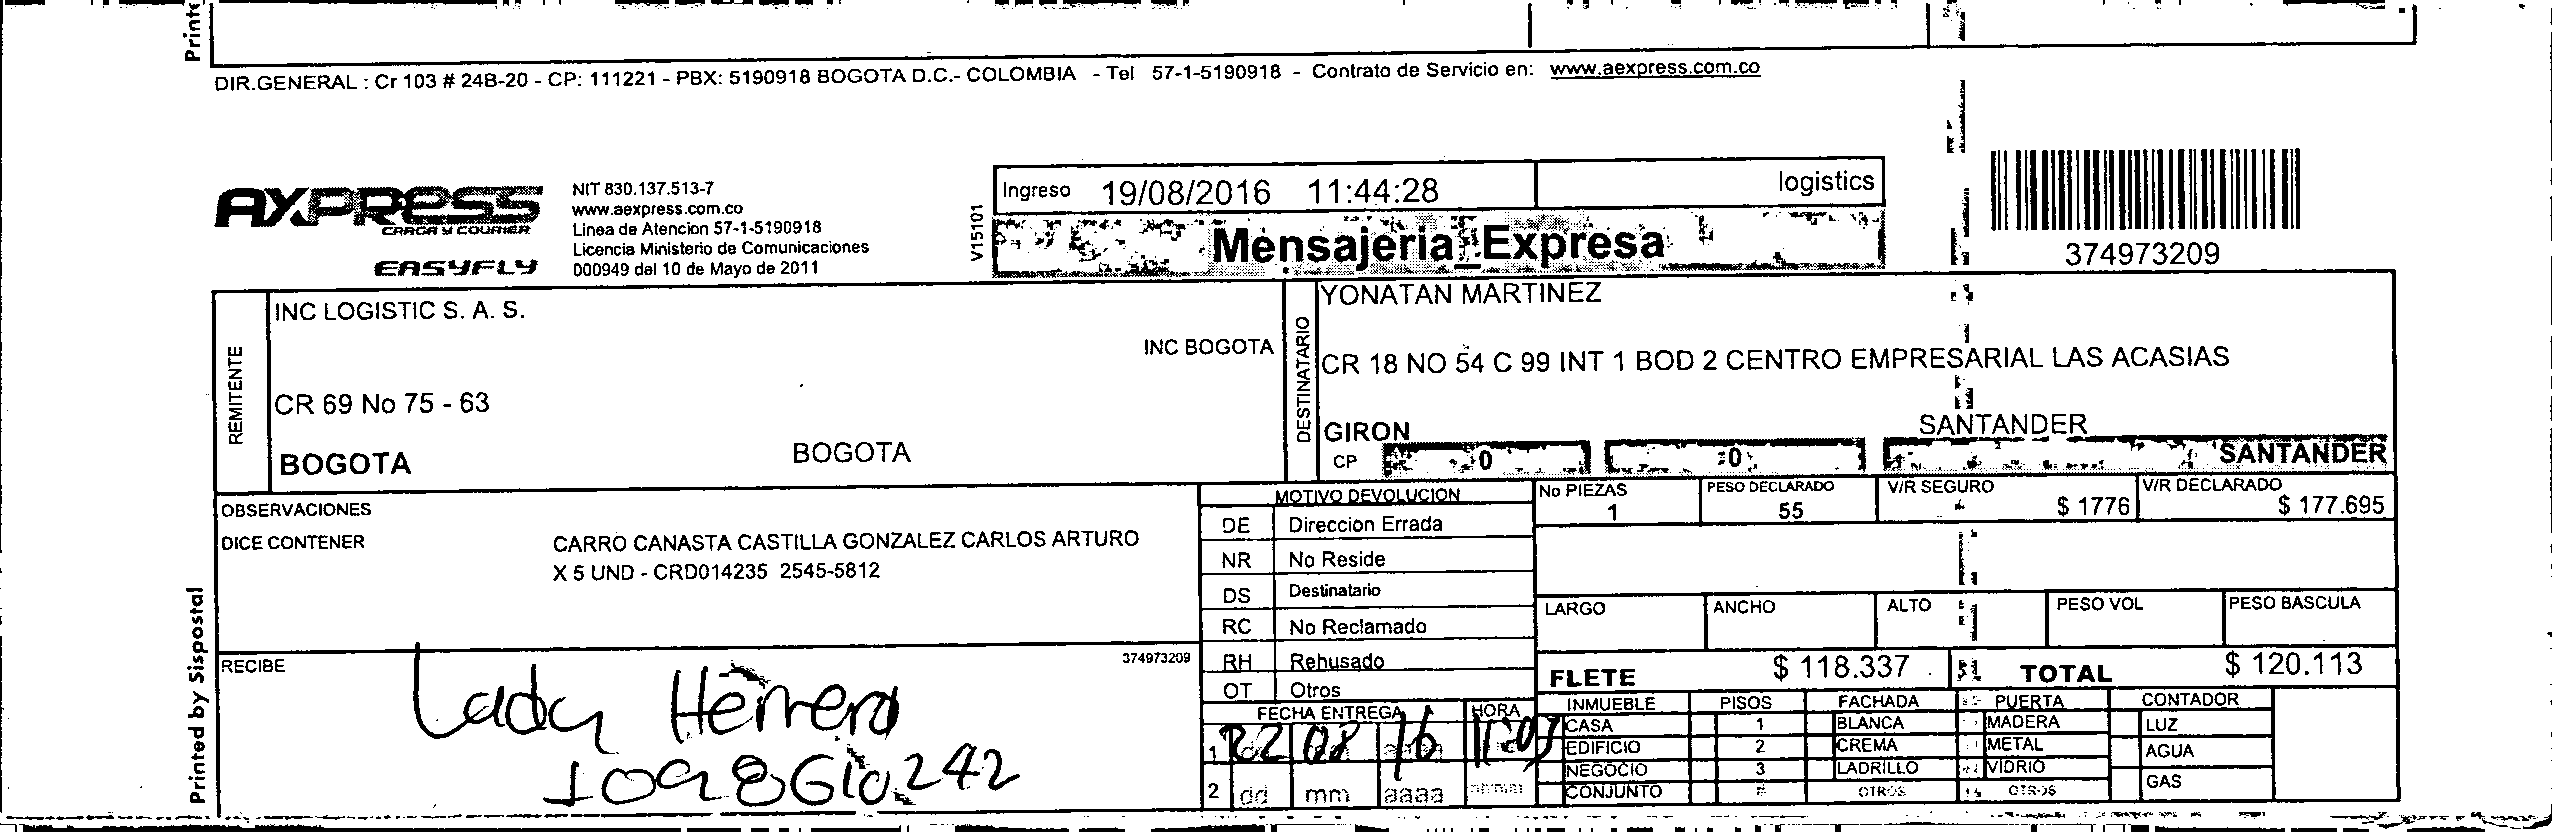 DIR.GENERAL : Cr 103 # 24B-20 - CP: 111221 - PBX: 5190918 BOGOTA D.C.- COLOMBIA - Tel 57-1-5190918 - Contrato de Servicio en: www.aexpress.com.co
AXPRESS
CARGA Y COURIER
EASYFLY
NIT 830.137.513-7
www.aexpress.com.co
Linea de Atencion 57-1-5190918
Licencia Ministerio de Comunicaciones
000949 del 10 de Mayo de 2011
V15101
Ingreso 19/08/2016 11:44:28 logistics
Mensajeria_Expresa
374973209
REMITENTE
INC LOGISTIC S. A. S.
INC BOGOTA
CR 69 No 75 - 63
BOGOTA BOGOTA
DESTINATARIO
YONATAN MARTINEZ
CR 18 NO 54 C 99 INT 1 BOD 2 CENTRO EMPRESARIAL LAS ACASIAS
GIRON SANTANDER
CP 0 0 SANTANDER
OBSERVACIONES
DICE CONTENER CARRO CANASTA CASTILLA GONZALEZ CARLOS ARTURO
X 5 UND - CRD014235 2545-5812
MOTIVO DEVOLUCION
DE Direccion Errada
NR No Reside
DS Destinatario
RC No Reclamado
RH Rehusado
OT Otros
No PIEZAS PESO DECLARADO V/R SEGURO V/R DECLARADO
1 55 $ 1776 $ 177.695
LARGO ANCHO ALTO PESO VOL PESO BASCULA
FLETE $ 118.337 TOTAL $ 120.113
RECIBE 374973209
Herrera
FECHA ENTREGA HORA
1 22 08 16
2 dd mm aaaa
INMUEBLE PISOS FACHADA PUERTA CONTADOR
CASA 1 BLANCA MADERA LUZ
EDIFICIO 2 CREMA METAL AGUA
NEGOCIO 3 LADRILLO VIDRIO GAS
CONJUNTO OTROS OTROS
Printed by Sispostal